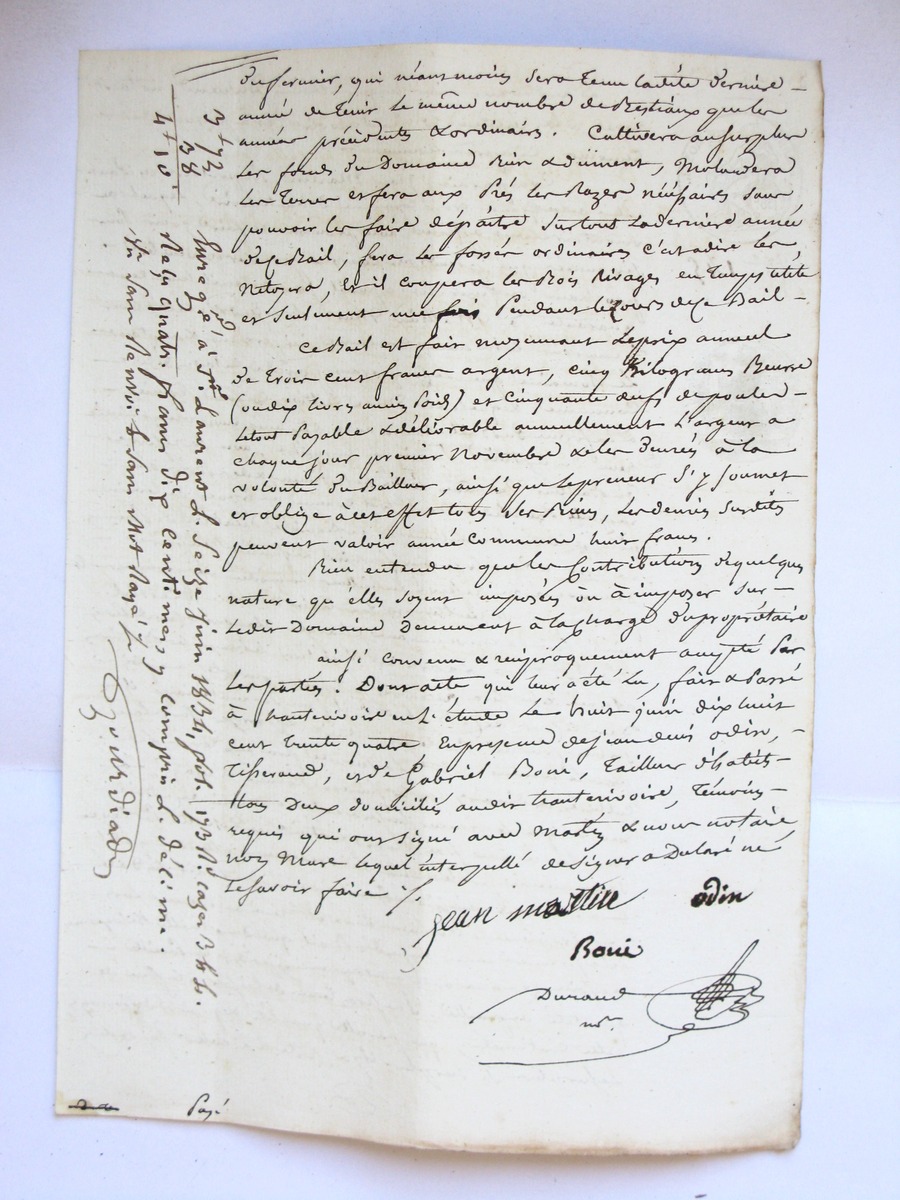 du fermier, qui néantmoins sera tenu ladite dernière
année de tenir le même nombre de Bestiaux que les
années précédentes & ordinaires. Cultivera au surplus
les fonds du Domaine Bien & düment,
les terres et fera aux Prés les Razes nécéssaires sans
pouvoir les faire dépaitre surtout la dernière année
de ce Bail, fera les fossés ordinaires c'est adire les
Netoyera, et il coupera les Bois Rivages en temps utile
et seulement une fois Pendant le cours de ce Bail
Ce Bail est fait moyennant le prix annuel
de trois cent francs argent, cinq Kilogrames Beurre
(ou dix livres ancien Poids) et cinquante œufs de poules
le tout Payable & délivrable annuellement l'argent a
chaque jour premier Novembre & les denrées à la
volonté du Bailleur, ainsi que le preneur s'y soumet
et oblige à cet effet tous ses Biens, les denrées susdites
peuvent valoir année commune huit francs.
Bien entendu que les Contributions de quelque
nature qu'elles soyent imposées ou à imposer sur
ledit Domaine demeurent à la charge du propriétaire
ainsi convenu & réciproquement accepté Par
les parties. Dont acte qui leur a été lu, fait & Passé
à hauterivoire en l'étude le huit juin dix huit
cent trente quatre En présence de jean denis odin,
Tisserand, et de Gabriel Boui, Tailleur d'habits
tous Deux domiciliés audit hauterivoire, Témoins
requis qui ont signé avec & nous notaire
non Mure lequel interpellé de signer a Déclaré ne
le savoir faire ./.
jean odin
Boui
Durand
nre.
3 f 73
38
4 f 10
Enregé à St. Laurent le seize juin 1834, fol. 173 Ro. cases 3 & 4.
Reçu quatre francs dix centimes y compris le décime.
Payé